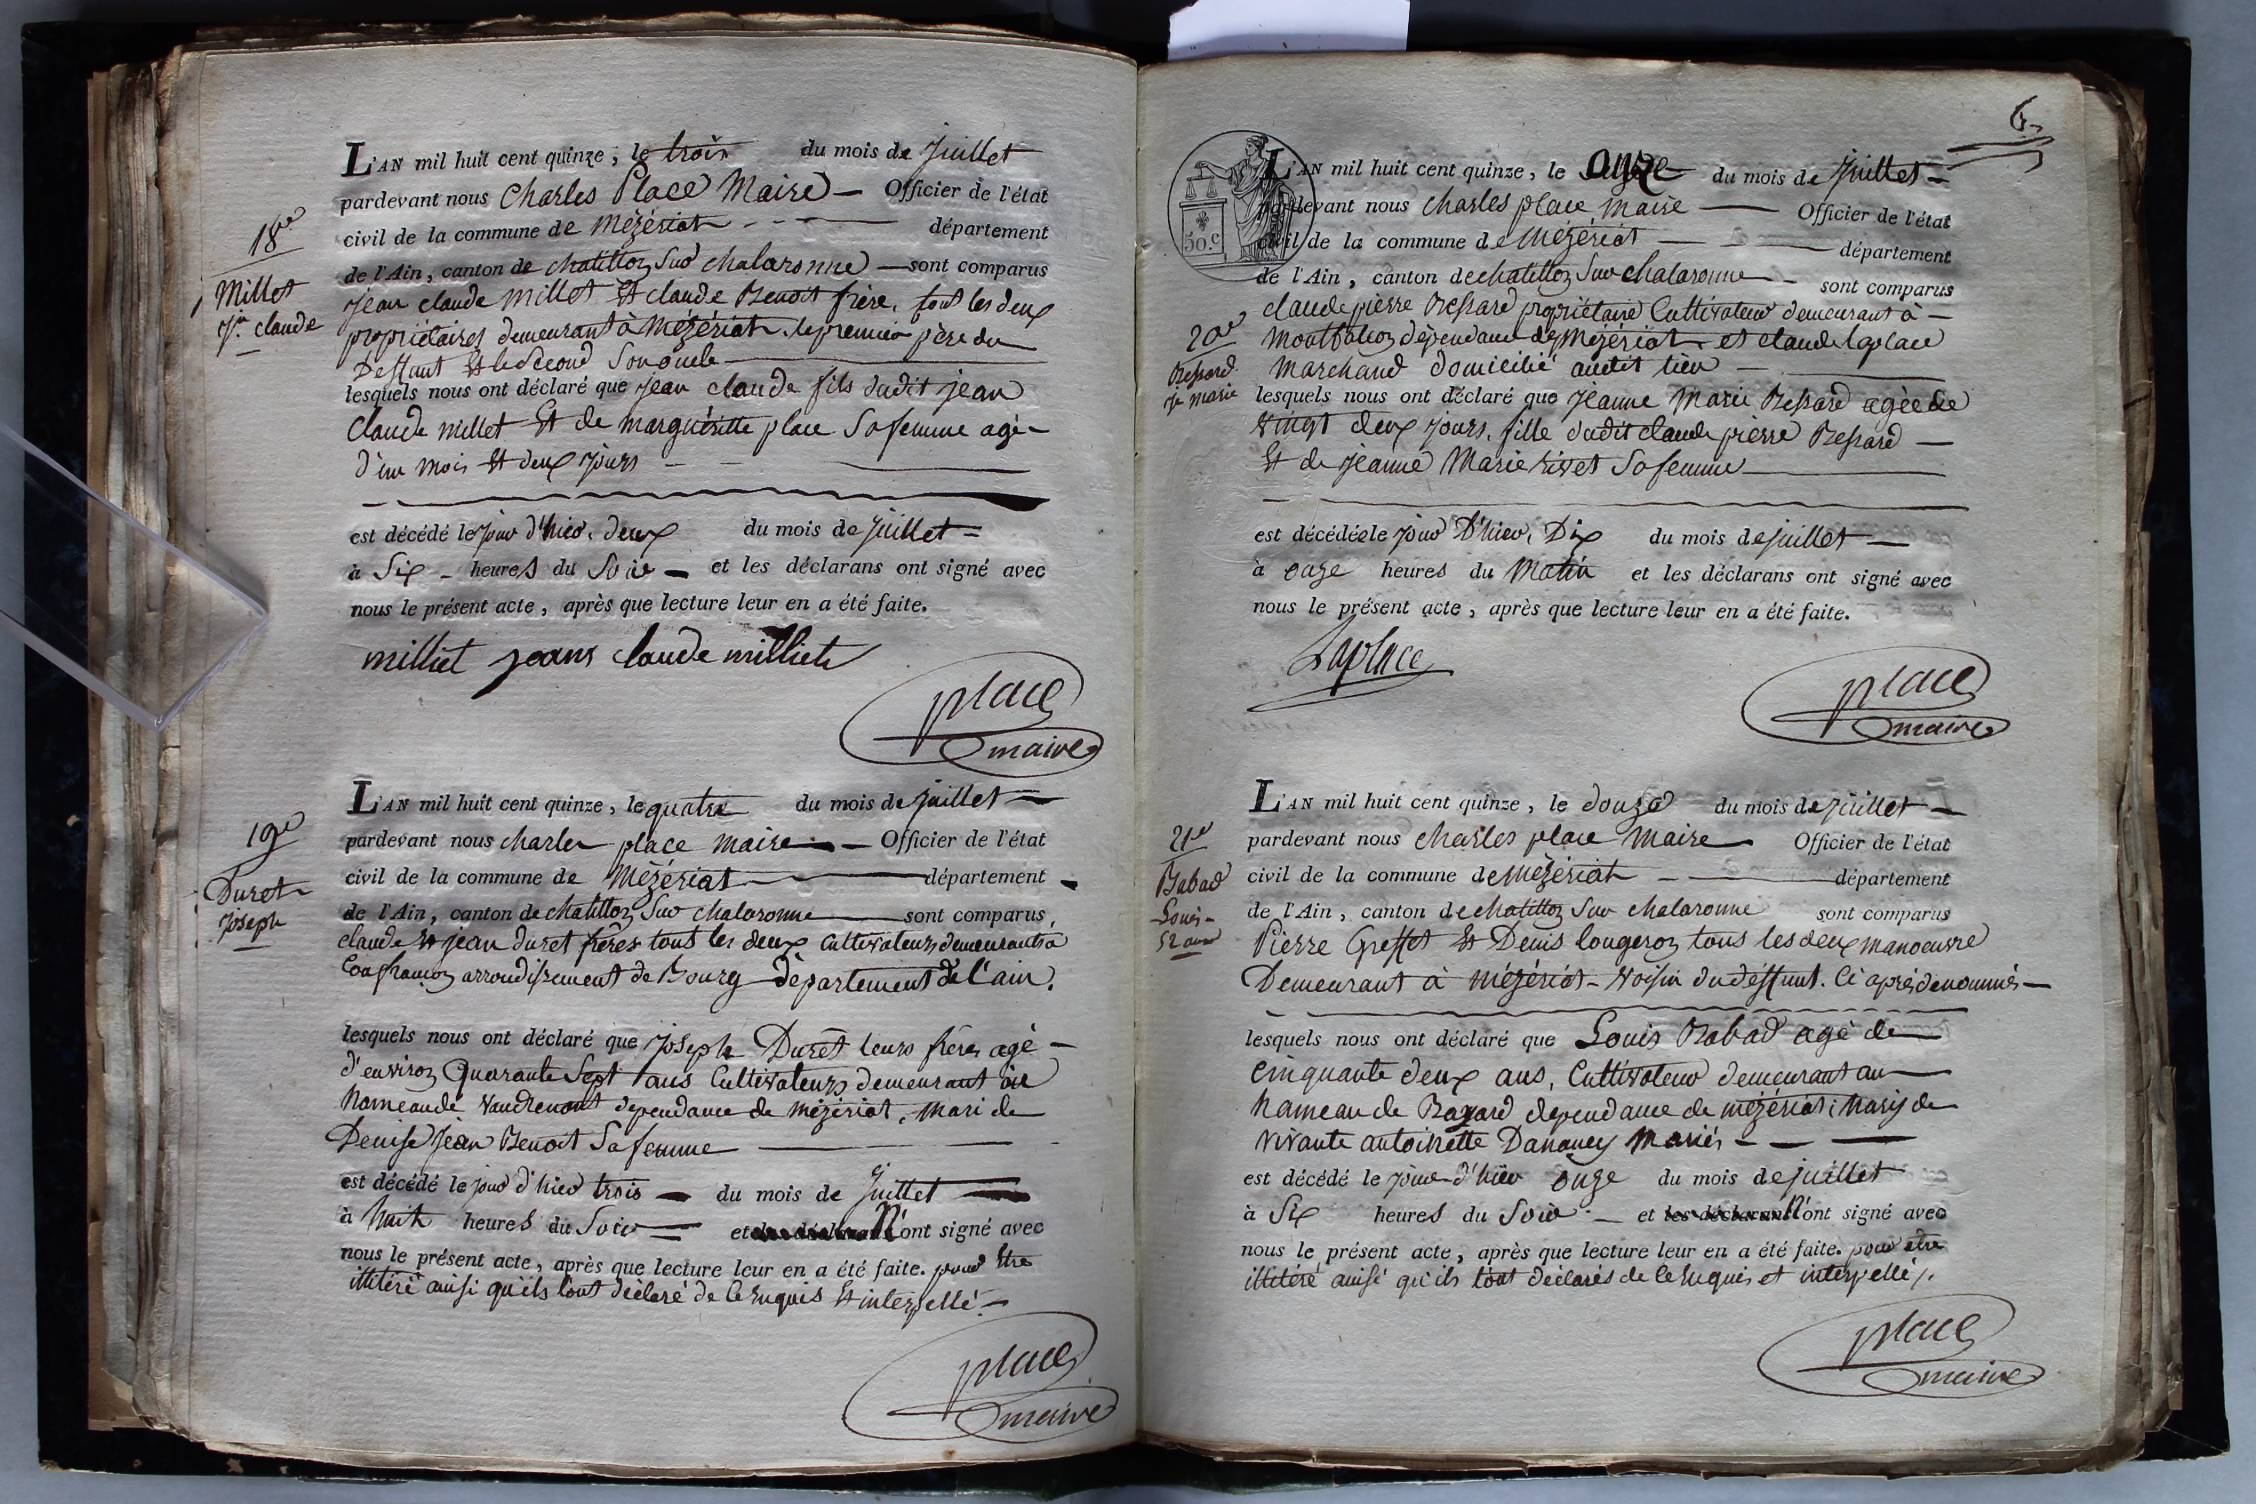 18e
Millet
Jn. claude
L'AN mil huit cent quinze, le trois du mois de Juillet
pardevant nous Charles Place Maire Officier de l'état
civil de la commune de Mézériat département
de l'Ain, canton de chatillon Sur chalaronne sont comparus
Jean claude Millet Et claude Benoit frère, tout les deux
propriétaires demeurant à Mézériat, le premier père du
Deffunt Et le second Son oncle
lesquels nous ont déclaré que Jean claude fils dudit jean
Claude Millet Et de marguéritte place Sa femme agé
d'un mois Et deux jours
est décédé le jour d'hier, deux du mois de Juillet
à Six heures du Soir et les déclarans ont signé avec
nous le présent acte, après que lecture leur en a été faite.
milliet jeans claude milliet
place
maire
19e
Duret
Joseph
L'AN mil huit cent quinze, le quatre du mois de Juillet
pardevant nous charles place maire Officier de l'état
civil de la commune de Mézériat département
de l'Ain, canton de chatillon Sur chalaronne sont comparus
claude Et jean duret frères tout les deux Cultivateurs demeurants à
Confrançon arrondissement de Bourg département de l'ain.
lesquels nous ont déclaré que Joseph Duret leurs frères agé
d'environ Quarante Sept ans Cultivateurs demeurant au
hameau de Vaudrenant dependance de mézériat, Mari de
Denise Jean Benoit Sa femme
est décédé le jour d'hier trois du mois de Juillet
à huit heures du Soir et N'ont signé avec
nous le présent acte, après que lecture leur en a été faite. pour Etre
illitéré ainsi qu'ils l'ont déclaré de ce Enquis Et interpellé
place
maire
6
50.c
20e
Bessard
Je marie
L'AN mil huit cent quinze, le onze du mois de Juillet
pardevant nous charles place Maire Officier de l'état
civil de la commune de Mézériat département
de l'Ain, canton de chatillon Sur chalaronne sont comparus
claude pierre Bessard propriétaire Cultivateur demeurant à
Montfalcon dépendance de Mézériat et claude laplace
Marchand domicilié audit lieu
lesquels nous ont déclaré que Jeanne Marie Bessard agée de
Vingt deux jours, fille dudit claude pierre Bessard
Et de jeanne Marie rivet Sa femme
est décédée le jour D'hier, Dix du mois de juillet
à onze heures du Matin et les déclarans ont signé avec
nous le présent acte, après que lecture leur en a été faite.
Laplace
place
maire
21e
Babad
Louis
52 ans
L'AN mil huit cent quinze, le douze du mois de juillet
pardevant nous charles place Maire Officier de l'état
civil de la commune de Mézériat département
de l'Ain, canton de chatillon Sur chalaronne sont comparus
Pierre Greffet Et Denis lougeron tous les deux manoeuvre
Demeurant à Mézériat voisin du déffunt. Ci après dénommés
lesquels nous ont déclaré que Louis Babad agé de
Cinquante deux ans, Cultivateur demeurant au
hameau de Bayard dependance de mézériat; Maris de
vivante antoinette Dananey Mariés
est décédé le jour d'hier onze du mois de juillet
à Six heures du Soir et les déclarans N'ont signé avec
nous le présent acte, après que lecture leur en a été faite. pour etre
illitéré ainsi qu'ils l'ont déclarés de ce Enquis et interpellé.
place
maire